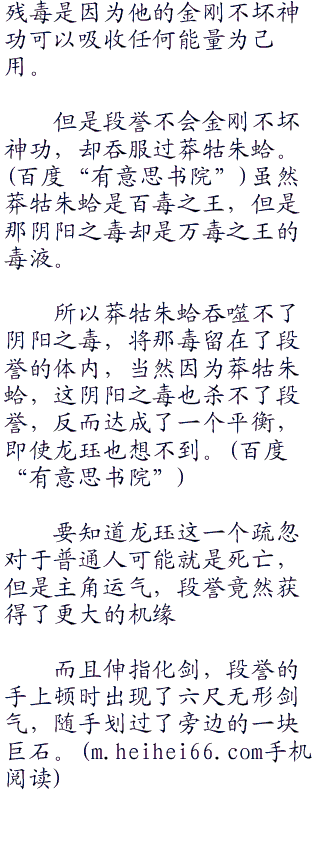 残毒是因为他的金刚不坏神
功可以吸收任何能量为己
用。
但是段誉不会金刚不坏
神功，却吞服过莽牯朱蛤。
(百度“有意思书院”)虽然
莽牯朱蛤是百毒之王，但是
那阴阳之毒却是万毒之王的
毒液。
所以莽牯朱蛤吞噬不了
阴阳之毒，将那毒留在了段
誉的体内，当然因为莽牯朱
蛤，这阴阳之毒也杀不了段
誉，反而达成了一个平衡，
即使龙珏也想不到。(百度
“有意思书院”)
要知道龙珏这一个疏忽
对于普通人可能就是死亡，
但是主角运气，段誉竟然获
得了更大的机缘
而且伸指化剑，段誉的
手上顿时出现了六尺无形剑
气，随手划过了旁边的一块
巨石。(m.heihei66.com手机
阅读)